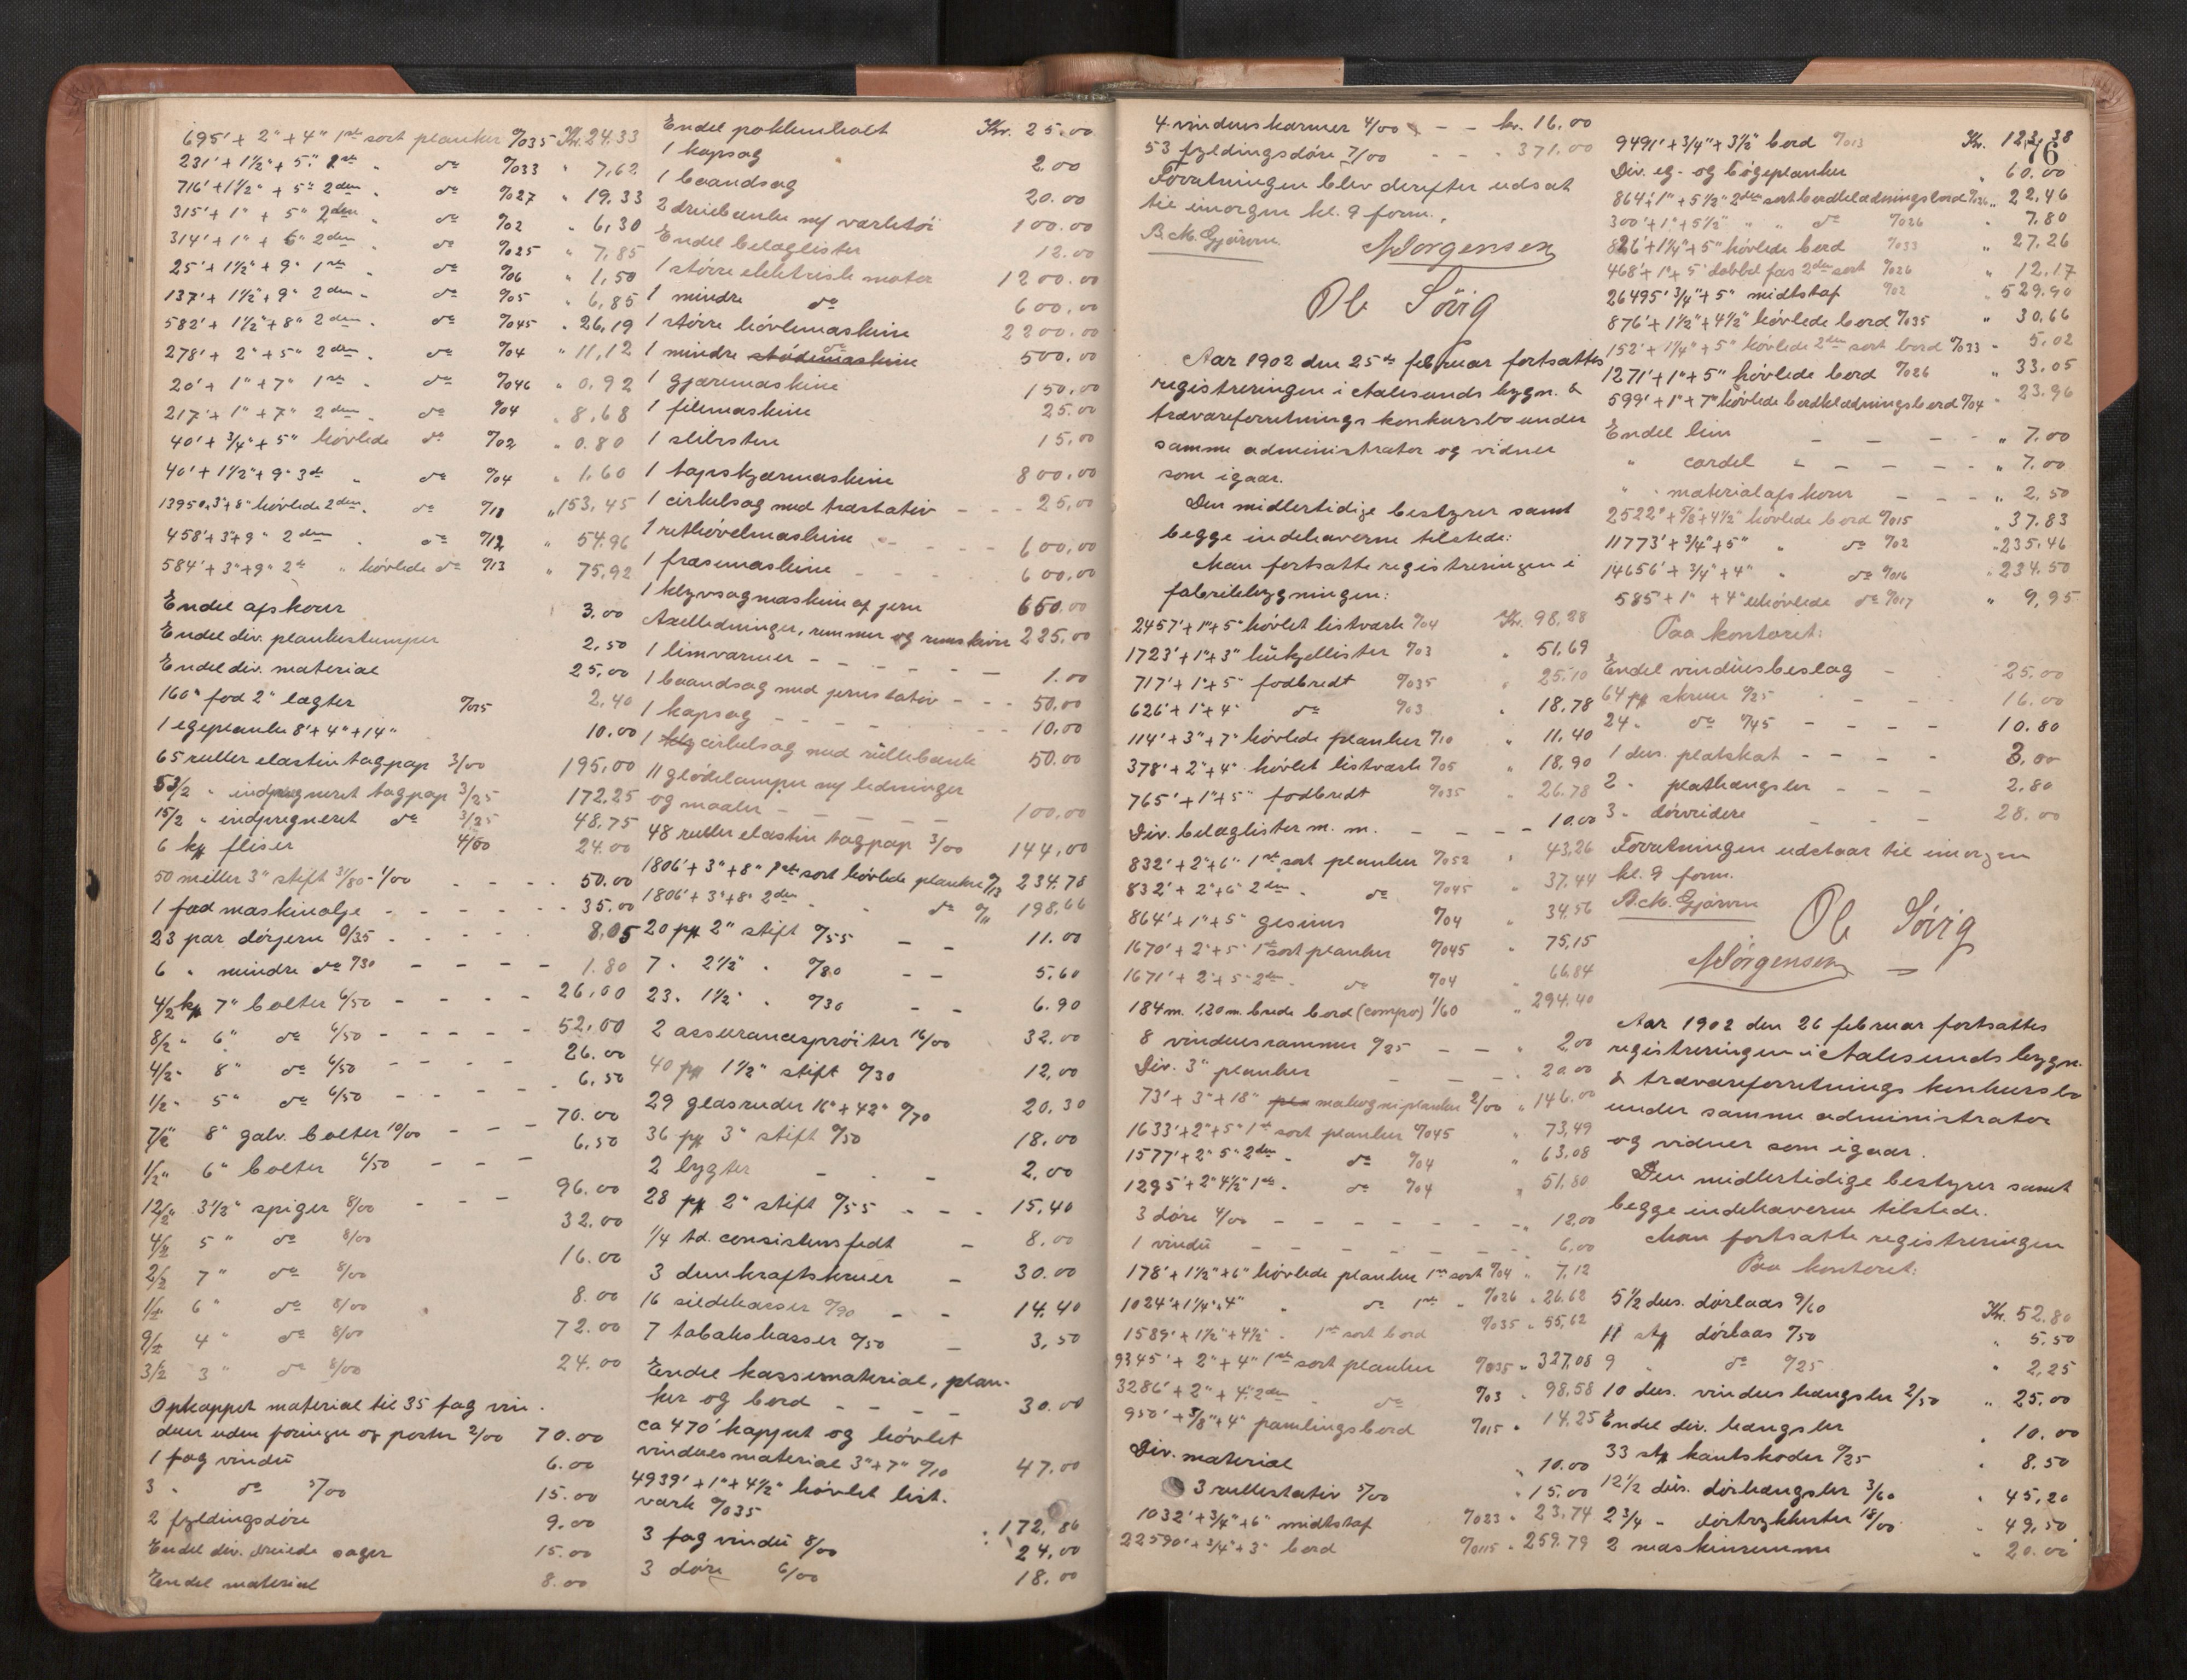 695' + 2" + 4" 1ste sort planker 0/035 Kr. 24,33
231' + 1½" + 5" 2den " do 0/033 " 7,62
716' + 1½" + 5" 2den " do 0/027 " 19,33
315' + 1" + 5" 2den " do 0/02 " 6,30
314' + 1" + 6" 2den " do 0/025 " 7,85
25' + 1½" + 9" 1ste " do 0/06 " 1,50
137' + 1½" + 9" 2den " do 0/05 " 6,85
582' + 1½" + 8" 2den " do 0/045 " 26,19
278' + 2" + 5" 2den " do 0/04 " 11,12
20' + 1" + 7" 1ste " do 0/046 " 0,92
217' + 1" + 7" 2den " do 0/04 " 8,68
40' + ¾" + 5" hövlede do 0/02 " 0.80
40' + 1½" + 9" 3die " do 0/04 " 1,60
1395' + 3" + 8" hövlede 2den " do 0/11 " 153,45
458' + 3" + 9" 2den " do 0/12 " 54.96
584' + 3" + 9" 2de " hövlede do 0/13 " 75,92
Endel afskour 3.00
Endel div. plankestumper 2,50
Endel div. material 25,00
160" fod 2" lægter 0/015 2,40
1 egeplanke 8' + 4" + 14" 10.00
65 ruller elastin tagpap 3/00 195,00
53/2 " indprægneret tagpap 3/25 172,25
15/2 " indprægneret do 3/25 48,75
6 kp fliser 4/00 24.00
50 miller 3" stift 31/80 - 1/00 - - - 50.00
1 fad maskinolje - - - - - 35.00
23 par dörjern 0/35 - - - - 8,05
6 " mindre do 0/30 - - - - 1.80
4/2 kp 7" bolter 6/50 - - - - 26,00
8/2 " 6" do 6/50 - - - - - 52,00
4/2 " 8" do 6/50 - - - - 26.00
1/2 " 5" do 6/50 - - - - 6,50
7/2 " 8" galv. bolter 10/00 - - - 70.00
1/2 " 6" bolter 6/50 - - - 6,50
12/2 " 3½" spiger 8/00 - - - 96.00
4/2 5" do 8/00 32.00
2/2 7" do 8/00 16.00
1/2 6" do 8/00 8.00
9/2 4" do 8/00 72.00
3/2 3" do 8/00 24.00
Opkappet material til 35 fag vin-
duer uden foringer og poster 2/00 70.00
1 fag vindu 6.00
3 " do 5/00 15.00
2 fyldingsdöre 9.00
Endel div. dreiede sager 15.00
Endel material 8.00
Endel pokkenholt Kr. 25.00
1 kapsag 2.00
1 baandsag 20.00
2 dreiebænke m/ værktöi 100.00
Endel belæglister 12.00
1 större elektrisk motor 1200.00
1 mindre do 600.00
1 större hövlemaskine 2200.00
1 mindre do 500.00
1 gjæremaskine 150,00
1 filemaskine 25.00
1 slibesten 15,00
1 tapskjærmaskine 800.00
1 cirkelsag med træstativ - - - 25,00
1 rethövelmaskine - - - - 600,00
1 fræsemaskine - - - - 600.00
1 klyvsagmaskine af jern 650.00
Axelledninger, remmer og remskiver 225,00
1 limvarmer - - - - - - 1.00
1 baandsag med jernstativ - - - 50.00
1 kapsag - - - - - - 10.00
1 cirkelsag med rullebænk 50.00
11 glödelamper m/ ledninger
og maaler - - - - - 100.00
48 ruller elastin tagpap 3/00 144,00
1806' + 3" + 8" 1ste sort hövlede planker 0/13 234.78
1806' + 3" + 8" 2den " " do 0/11 198,66
20 pk 2" stift 0/55 - - 11.00
7 " 2½" " 0/80 - - 5,60
23 " 1½" " 0/30 - - 6.90
2 assurancesprøiter 16/00 32.00
40 pk 1½" stift 0/30 12,00
29 glasruder 16" + 42" 0/70 20.30
36 pk 3" stift 0/50 18.00
2 lygter - - - 2,00
28 pk 2" stift 0/55 - - - 15,40
¼ td. consistensfedt - 8.00
3 dunkraftskruer - 30.00
16 sildekasser 0/90 - - 14.40
7 tabakskasser 0/50 - 3,50
Endel kassematerial, plan-
ker og bord - - - - 30.00
ca 470' kappet og hövlet
vinduesmaterial 3" + 7" 0/10 47.00
4939' + 1" + 4½" hövlet list-
værk 0/035 172,86
3 fag vindu 8/00 24,00
3 döre 6/00 18.00
4 vindueskarmer 4/00 - - kr. 16.00
53 fyldingsdöre 7/00 - - " 371.00
Forretningen blev derefter udsat
til imorgen kl. 9 form.
B.M. Gjærum Jörgensen
Ole Sövig
Aar 1902 den 25de februar fortsattes
registreringen i Aalesunds bygn. &
trævareforretnings konkursbo under
samme administrator og vidner
som igaar.
Den midlertidige bestyrer samt
begge indehaverne tilstede:
Man fortsatte registreringen i
fabrikbygningen:
2457' + 1" + 5" hövlet listværk 0/04 Kr. 98,28
1723' + 1" + 3" hulkjellister 0/03 " 51,69
717' + 1" + 5" fodbredt 0/035 " 25,10
626' + 1" + 4" do 0/03 " 18,78
114' + 3" + 7" hövlede planker 0/10 " 11,40
378' + 2" + 4" hövlet listværk 0/05 " 18,90
765' + 1" + 5" fodbredt 0/035 " 26.78
Div. belæglister m. m. - - - - 10.00
832' + 2" + 6" 1ste sort planker 0/052 " 43,26
832' + 2" + 6" 2den " do 0/045 " 37,44
864' + 1" + 5" gesims 0/04 " 34,56
1670' + 2" + 5" 1ste sort planker 0/045 " 75,15
1671' + 2" + 5" 2de " do 0/04 " 66,84
184 m. 1,20 m. brede bord (compo) 1/60 " 294,40
8 vinduesrammer 0/25 - - " 2,00
Div. 3" planker - - - " 20.00
73' + 3" + 18" mahogniplanker 2/00 " 146.00
1633' + 2" + 5" 1ste sort planker 0/045 " 73,49
1577' + 2" 5" 2den " do 0/04 " 63,08
1295' + 2" 4½" 1ste " do 0/04 " 51,80
3 döre 4/00 - - - - - - - " 12,00
1 vindu - - - - - - - " 6,00
178' + 1½" + 6" hövlede planker 1ste sort 0/04 " 7,12
1024' + 1¼" + 4" " do 1ste " 0/026 " 26.62
1589' + 1½" + 4½" " 1ste sort bord 0/035 " 55,62
9345' + 2" + 4" 1ste sort planker 0/035 " 327,08
3286' + 2" + 4" 2den " do 0/03 " 98,58
950' + 5/8" + 4" pamlingsbord 0/015 " 14.25
Div. material " 10.00
3 rullestativ 5/00 " 15,00
1032' + ¾" + 6" midtstaf 0/023 " 23,74
22590' + ¾" + 3" bord 0/0115 " 259.79
76
9491' + ¾" + 3½" bord 0/013 Kr. 123,38
Div. eg- og bögeplanker " 60.00
864' + 1" + 5½" 2den sort bordklædningsbord 0/026 " 22,46
300' + 1" + 5½" " " do 0/026 " 7.80
826' + 1¼" + 5" hövlede bord 0/033 " 27,26
468' + 1" + 5" dobbel fas 2den sort 0/026 " 12,17
26495' ¾" + 5" midtstaf 0/02 " 529.90
876' + 1½" + 4½" hövlede bord 0/035 " 30.66
152' + 1¼" + 5" hövlede 2den sort bord 0/033 " 5,02
1271' + 1" + 5" hövlede bord 0/026 " 33,05
599' + 1" + 7" hövlede bordklædningsbord 0/04 " 23.96
Endel lim - - - - - " 7.00
" cordel - - - - - " 7,00
" materialafskour - - - " 2,50
2522' + 5/8" + 4½" hövlede bord 0/015 " 37.83
11773' + ¾" + 5" " do 0/02 " 235,46
14656' + ¾" + 4" " do 0/016 " 234.50
585' + 1" + 4" uhövlede do 0/017 " 9,95
Paa kontoret:
Endel vinduesbeslag - 25.00
64 pk skruer 0/25 - - - 16.00
24 " do 0/45 - - - - 10.80
1 dus. platskat - - - - 3,00
2 " plathængsler - - - 2,80
3 " dörvridere - - - 28.00
Forretningen udstaar til imorgen
kl. 9 form.
B.M. Gjærum Ole Sövig
Jörgensen
Aar 1902 den 26 februar fortsattes
registreringen i Aalesunds bygn.
& trævareforretnings konkursbo
under samme administrator
og vidner som igaar.
Den midlertidige bestyrer samt
begge indehaverne tilstede.
Man fortsatte registreringen
Paa kontoret:
5½ dus. dörlaas 9/60 Kr. 52.80
11 stk dörlaas 0/50 " 5.50
9 " do 0/25 " 2,25
10 dus. vindushængsler 2/50 " 25.00
Endel div. hængsler " 10.00
33 stk kantskoder 0/25 " 8.50
12½ dus. dörhængsler 3/60 " 45,20
2¾ " dörtrykkerter 18/00 " 49,50
2 maskinremme " 20.00